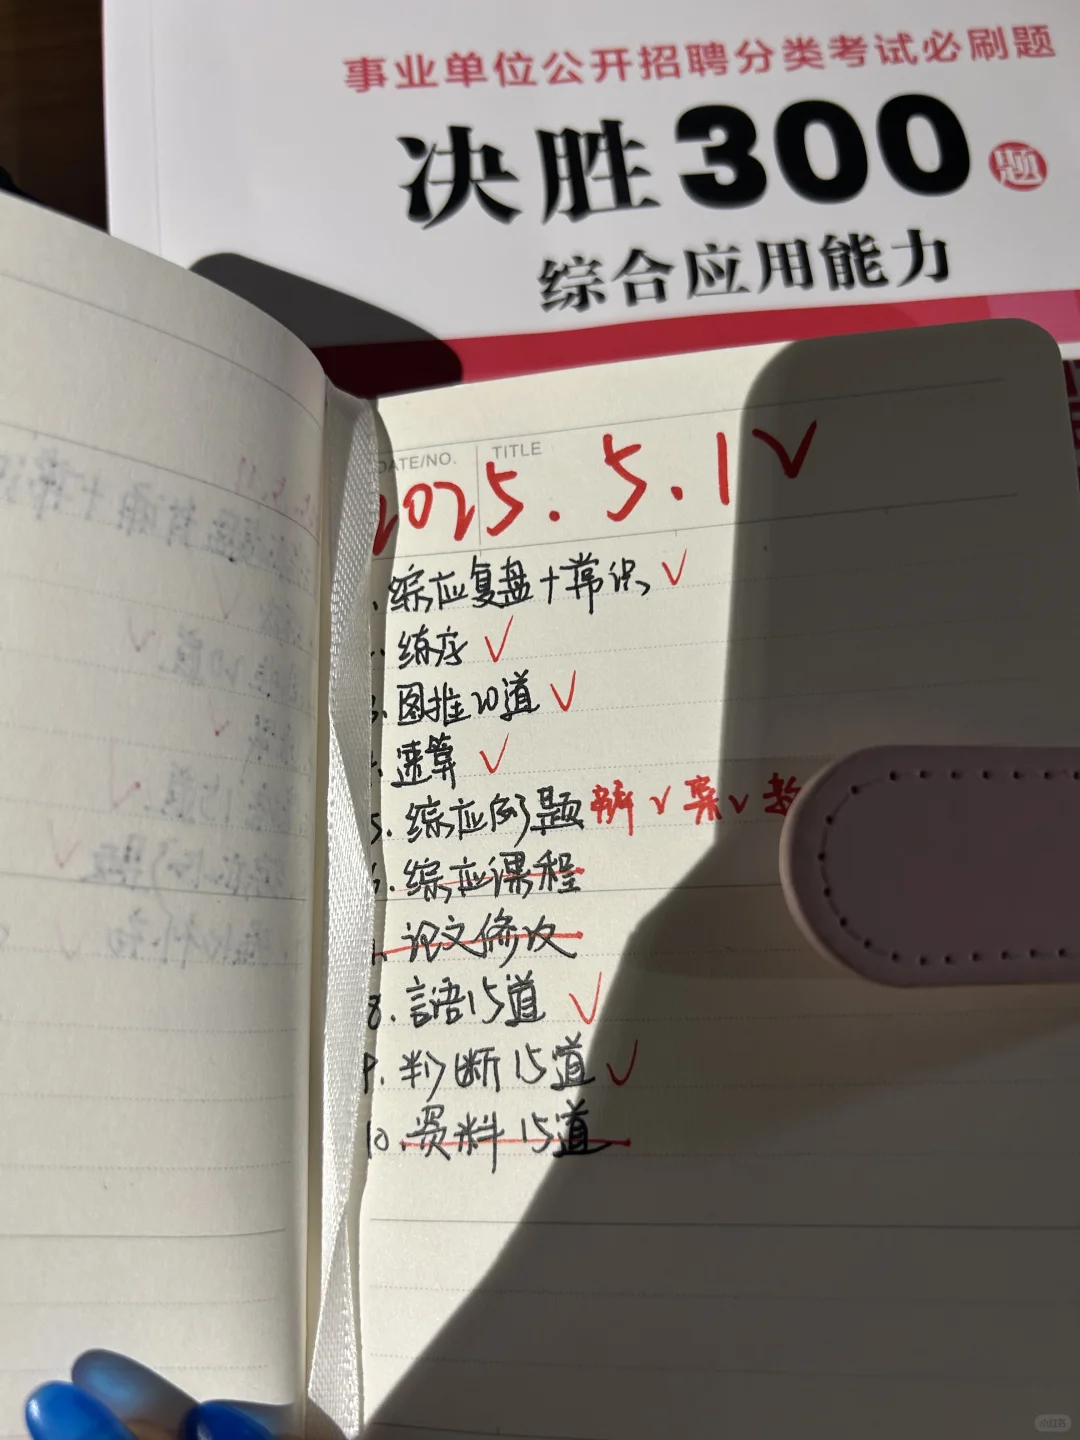 事业单位公开招聘分类考试必刷题
决胜300题
综合应用能力
DATE/NO. TITLE
2025. 5.1 ✓
综应复盘+常识 ✓
练字 ✓
3. 图推20道 ✓
速算 ✓
5. 综应例题 辨 ✓ 案 ✓
6. 综应课程
论文修改
8. 言语15道 ✓
9. 判断15道 ✓
10. 资料15道
小红书